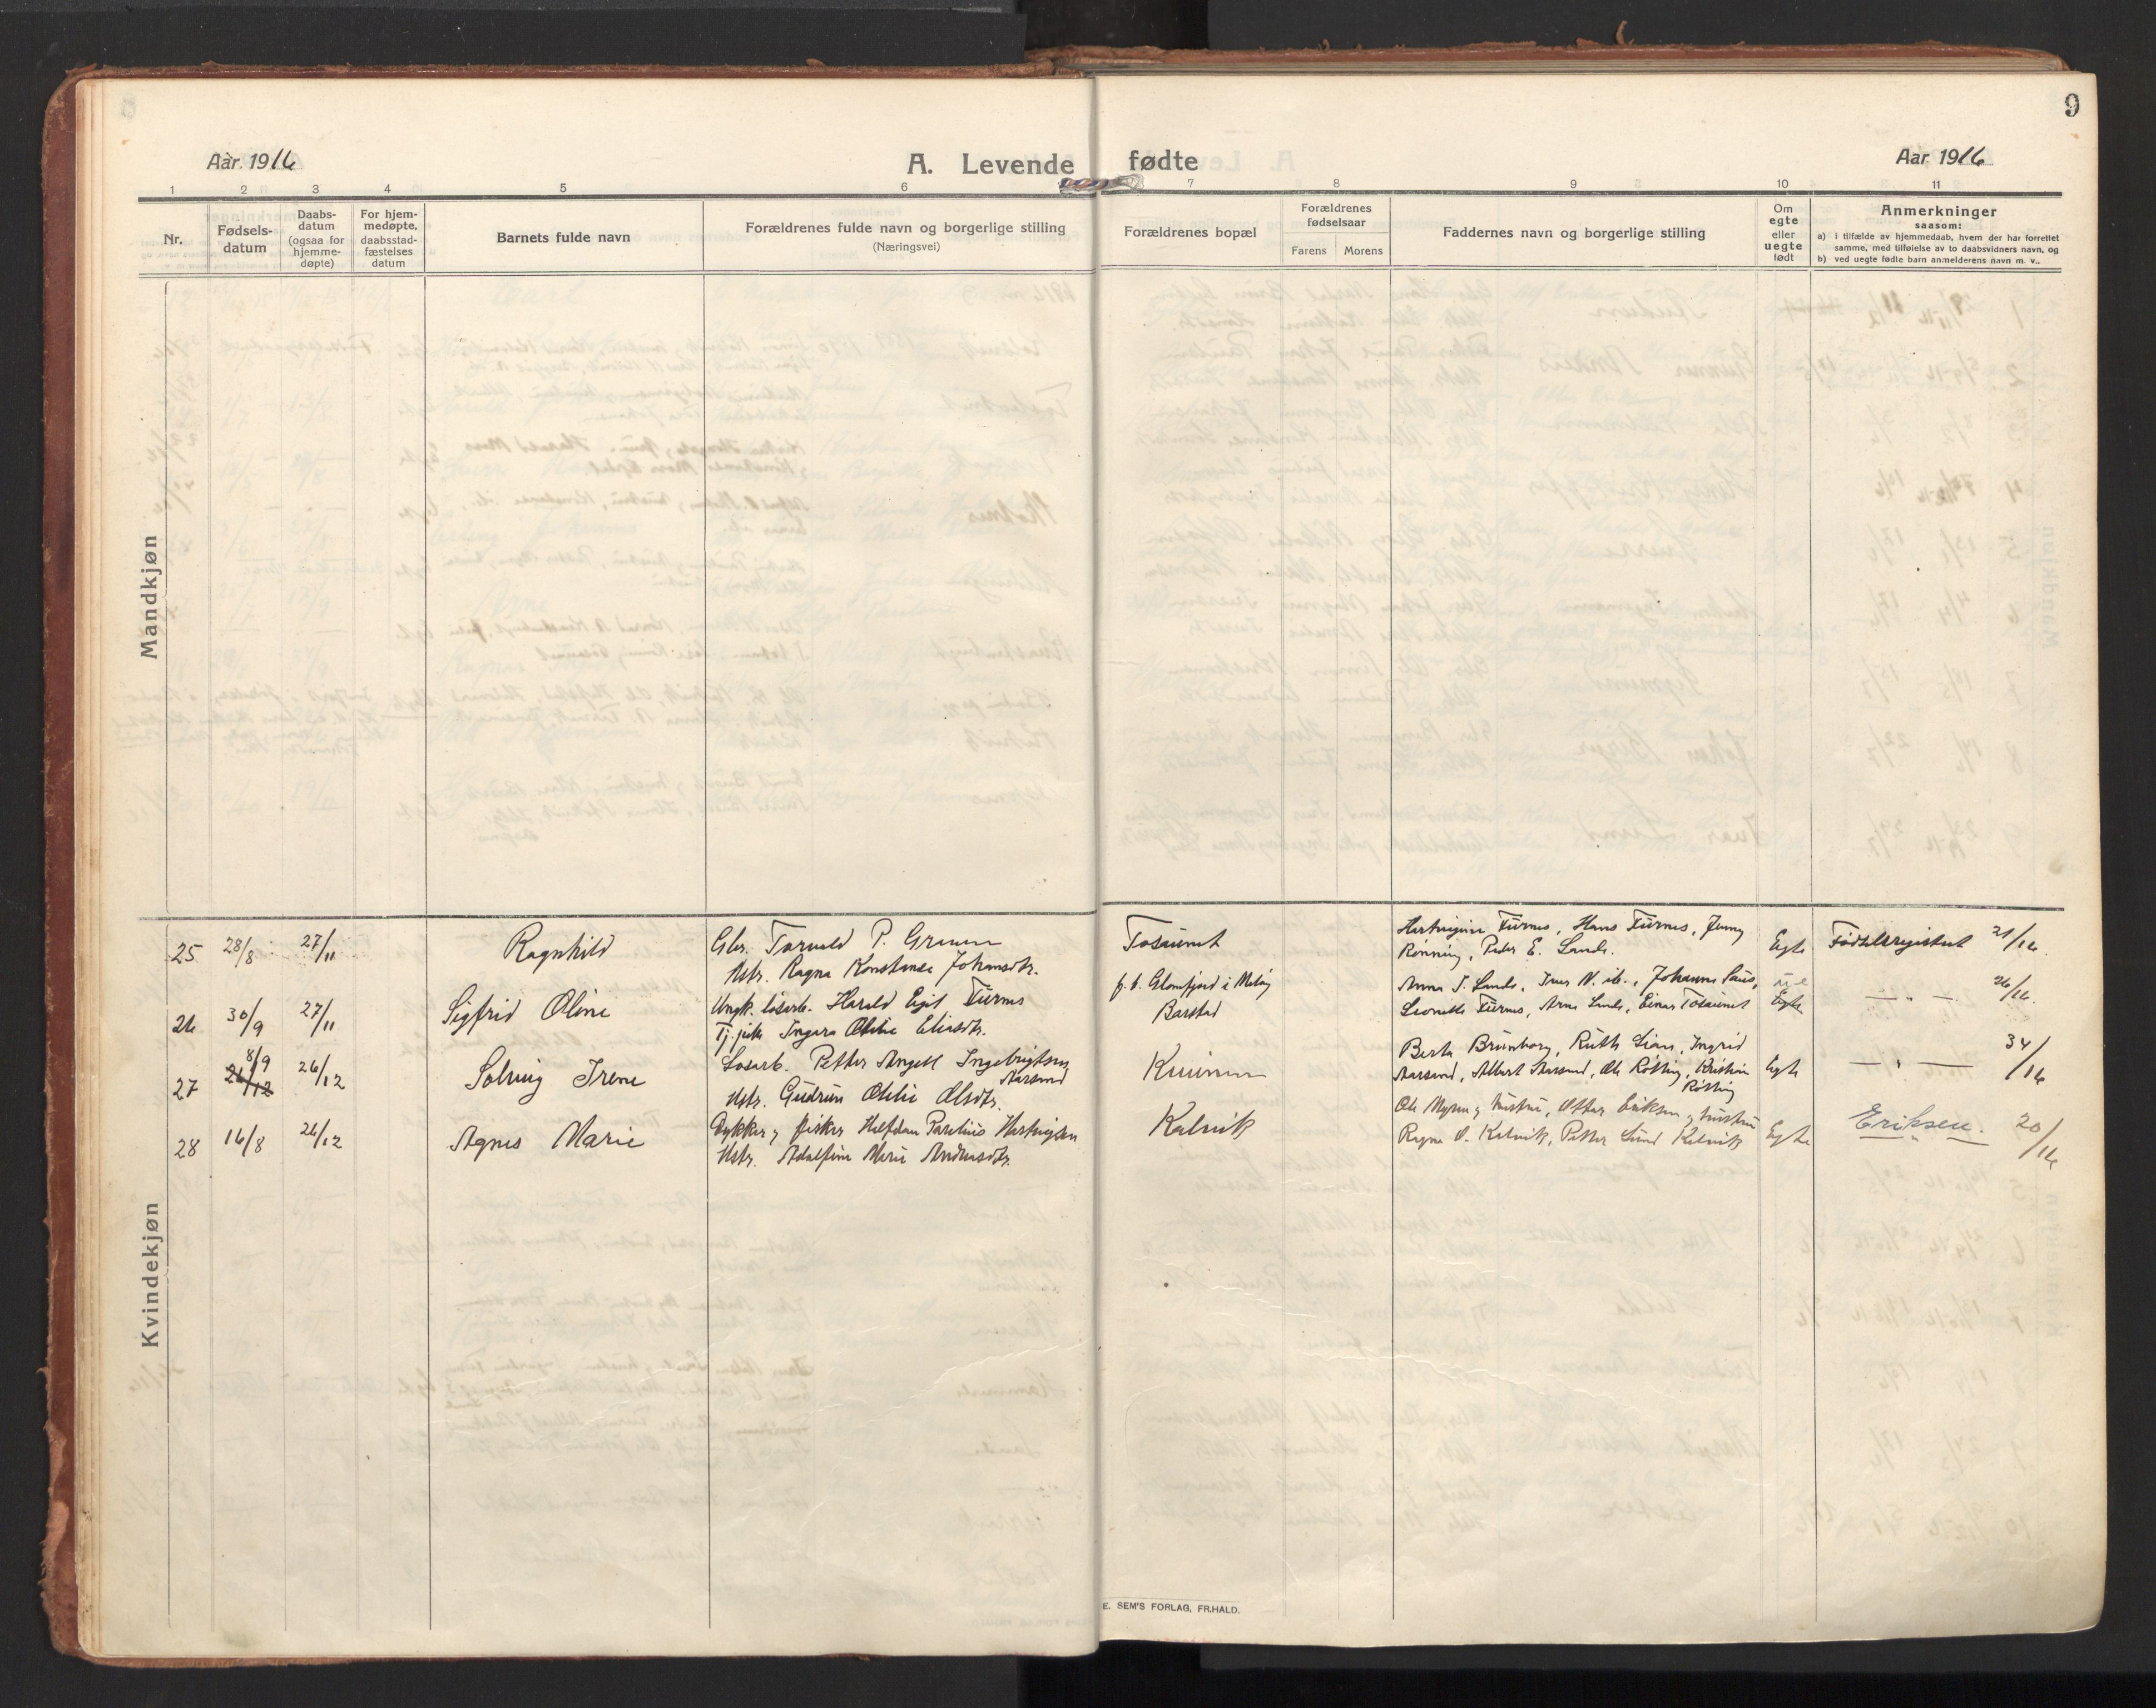 9
Aar. 1916
A. Levende fødte
Aar 1916
1 2 3 4 5 6 7 8 9 10 11
Nr.
Fødsels-
datum
Daabs-
datum
(ogsaa for
hjemme-
døpte)
For hjem-
medøpte,
daabsstad-
fæstelses
datum
Barnets fulde navn
Forældrenes fulde navn og borgerlige stilling
(Næringsvei)
Forældrenes bopæl
Forældrenes
fødselsaar
Farens Morens
Faddernes navn og borgerlige stilling
Om
egte
eller
uegte
født
Anmerkninger
saasom:
a) i tilfælde av hjemmedaab, hvem der har forrettet
samme, med tilføielse av to daabsvidners navn, og
b) ved uegte fødte barn anmelderens navn m. v..
Mandkjøn
Kvindekjøn
25 28/8 27/11 Ragnhild
Gbr. Torvald P.
Hstr. Ragna Konstanse Johansdtr.
Tosaunet
Furnes, Hans Furnes, Jenny
Rönning, Peder E. Lande.
Egte Födselsregisteret 21/16.
26 30/9 27/11 Sigfrid Oline
Ungk. lösarb. Harald Egil Furnes
Tj. pike Ingara Otilie Eliasdtr.
f. t. Glomfjord i Melöy
Barstad
Anna J. Lande, Iver N. ib., Johanna
Leonelle Furnes, Arne Lande, Einar Tosaunet
ue
Egte — " — 26/16.
27 8/9 26/12 26/12 Solveig Irene
Lösarb. Petter Angell Ingebrigtsen
Aarsund
Hstr. Gudrun Otilie Olsdtr.
Berta Brunborg, Ruth Lian, Ingrid
Aarsund, Albert Aarsund, Ole Rötting, Kristine
Rötting
Egte — " — 34/16
28 16/8 26/12 Agnes Marie
Dykker og fisker Halfdan Parelius Hartvigsen
Hstr. Adolfine Marie Andreasdtr.
Kalvik
Ole Myren og hustru, Otter Eriksen og hustru
Ragna O. Kalvik, Petter Lund Kalvik
Egte Eriksen. " 20/16
E. SEM'S FORLAG, FR.HALD.